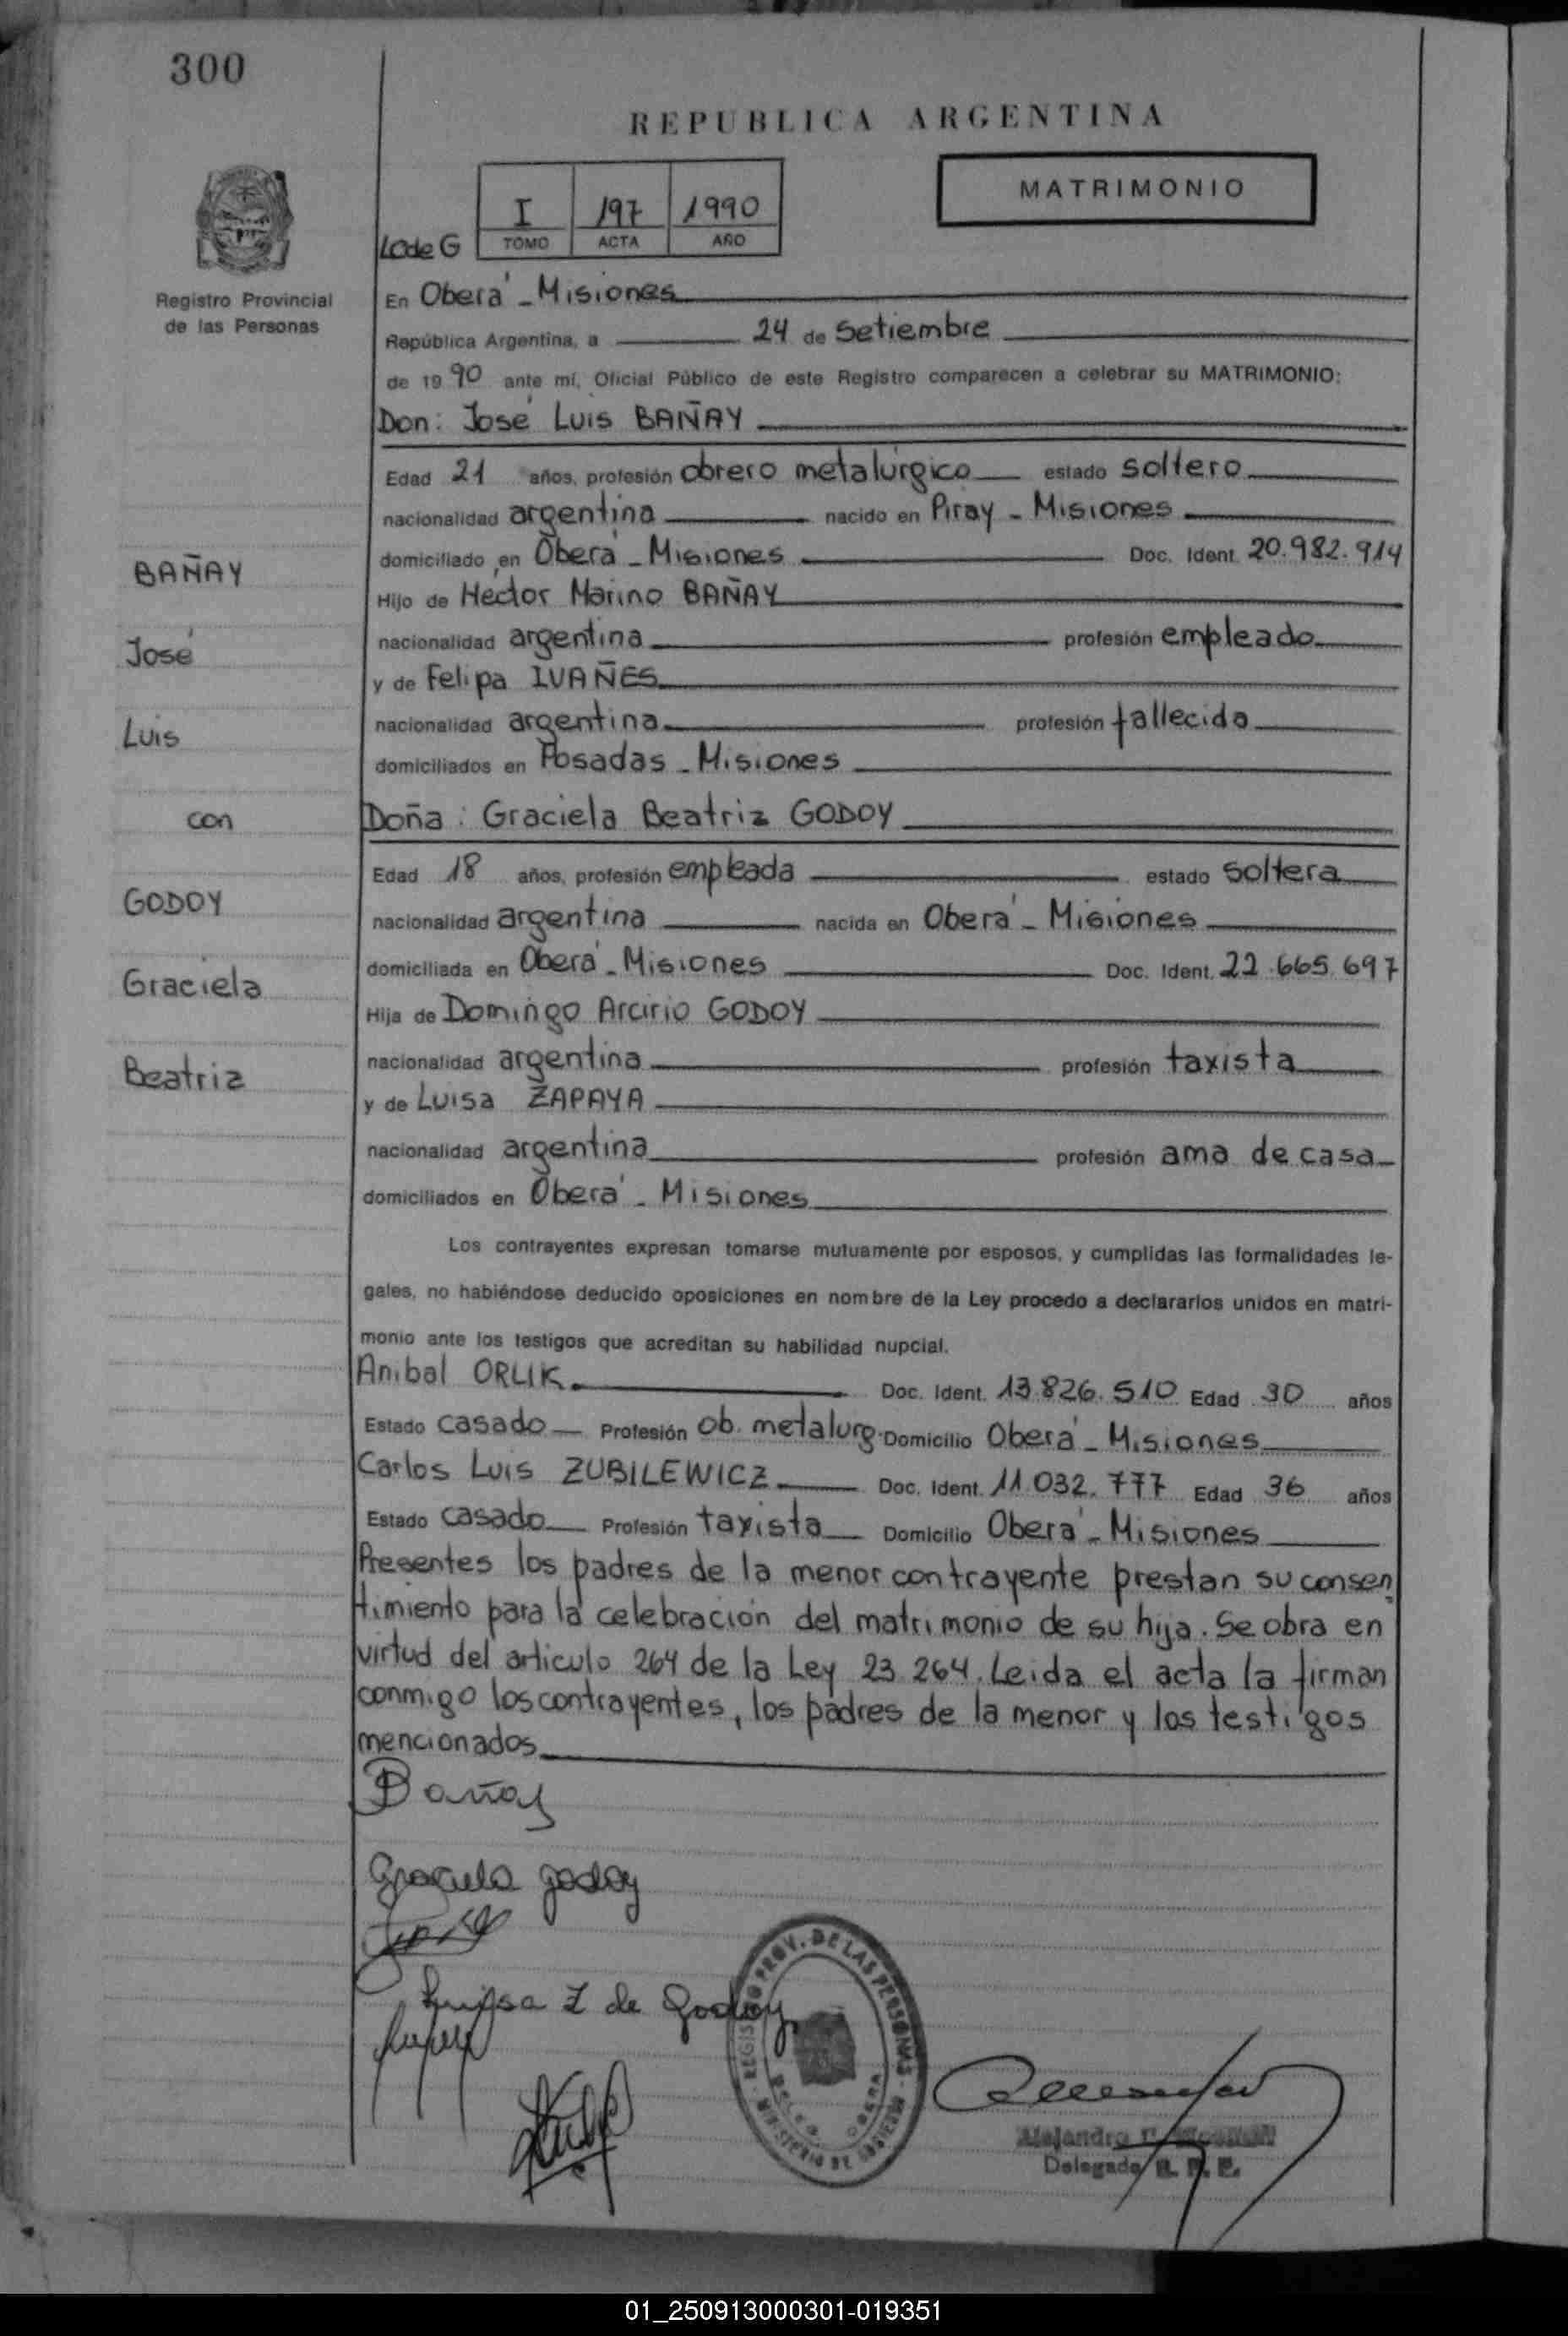 300
REPUBLICA ARGENTINA
MATRIMONIO
I 197 1990
LC de G TOMO ACTA AÑO
Registro Provincial
de las Personas
En Oberá - Misiones
República Argentina, a 24 de Setiembre
de 1990 ante mí, Oficial Público de este Registro comparecen a celebrar su MATRIMONIO:
Don: José Luis BAÑAY
Edad 21 años, profesión obrero metalúrgico estado soltero
nacionalidad argentina nacido en Piray - Misiones
domiciliado en Oberá - Misiones Doc. Ident. 20.982.914
Hijo de Hector Marino BAÑAY
nacionalidad argentina profesión empleado
y de Felipa IVAÑES
nacionalidad argentina profesión fallecida
domiciliados en Posadas - Misiones
Doña: Graciela Beatriz GODOY
Edad 18 años, profesión empleada estado soltera
nacionalidad argentina nacida en Oberá - Misiones
domiciliada en Oberá - Misiones Doc. Ident. 22.665.697
Hija de Domingo Arcirio GODOY
nacionalidad argentina profesión taxista
y de Luisa ZAPAYA
nacionalidad argentina profesión ama de casa
domiciliados en Oberá - Misiones
BAÑAY
José
Luis
con
GODOY
Graciela
Beatriz
Los contrayentes expresan tomarse mutuamente por esposos, y cumplidas las formalidades le-
gales, no habiéndose deducido oposiciones en nombre de la Ley procedo a declararlos unidos en matri-
monio ante los testigos que acreditan su habilidad nupcial.
Anibal ORLIK Doc. Ident. 13.826.510 Edad 30 años
Estado casado Profesión ob. metalurg. Domicilio Oberá - Misiones
Carlos Luis ZUBILEWICZ Doc. Ident. 11.032.777 Edad 36 años
Estado casado Profesión taxista Domicilio Oberá - Misiones
Presentes los padres de la menor contrayente prestan su consen
timiento para la celebración del matrimonio de su hija. Se obra en
virtud del articulo 264 de la Ley 23.264. Leida el acta la firman
conmigo los contrayentes, los padres de la menor y los testigos
mencionados
Bañay
Graciela godoy
Luisa Z de Godoy
REGISTRO PROV. DE LAS PERSONAS
MINISTERIO DE GOBIERNO
DELEG. OBERA
Alejandro
Delegado R. P. P.
01_250913000301-019351